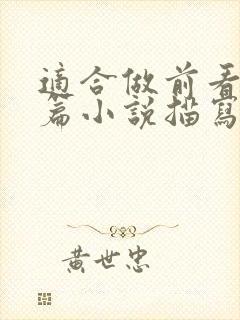 適合做前看
篇小說描寫
黃世忠